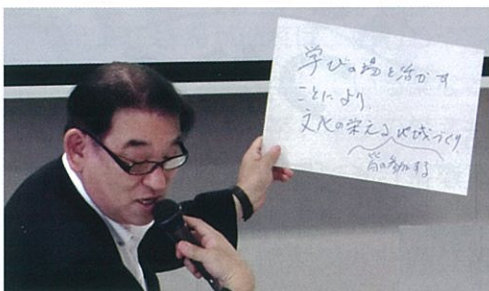 学びの場を活かす
ことにより
文化の栄える地域づくり
皆の参加する